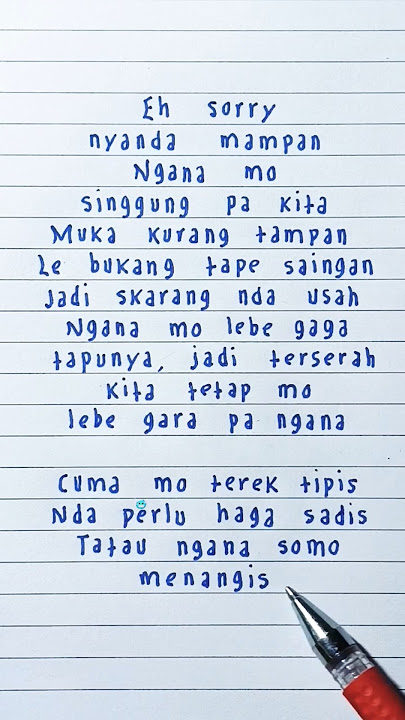 Eh sorry
nyanda mampan
Ngana mo
singgung pa kita
Muka kurang tampan
Le bukang tape saingan
Jadi skarang nda usah
Ngana mo lebe gaga
tapunya, jadi terserah
Kita tetap mo
lebe gara pa ngana
Cuma mo terek tipis
Nda perlu haga sadis
Tatau ngana somo
menangis